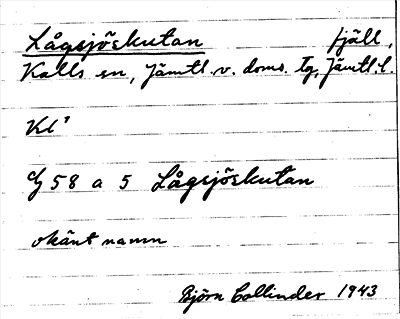 Lågsjöskutan fjäll,
Kalls sn, Jämtl. v. doms. tg, Jämtl. l.
Kl³
G 58 a 5 Lågsjöskutan
okänt namn
Björn Collinder 1943